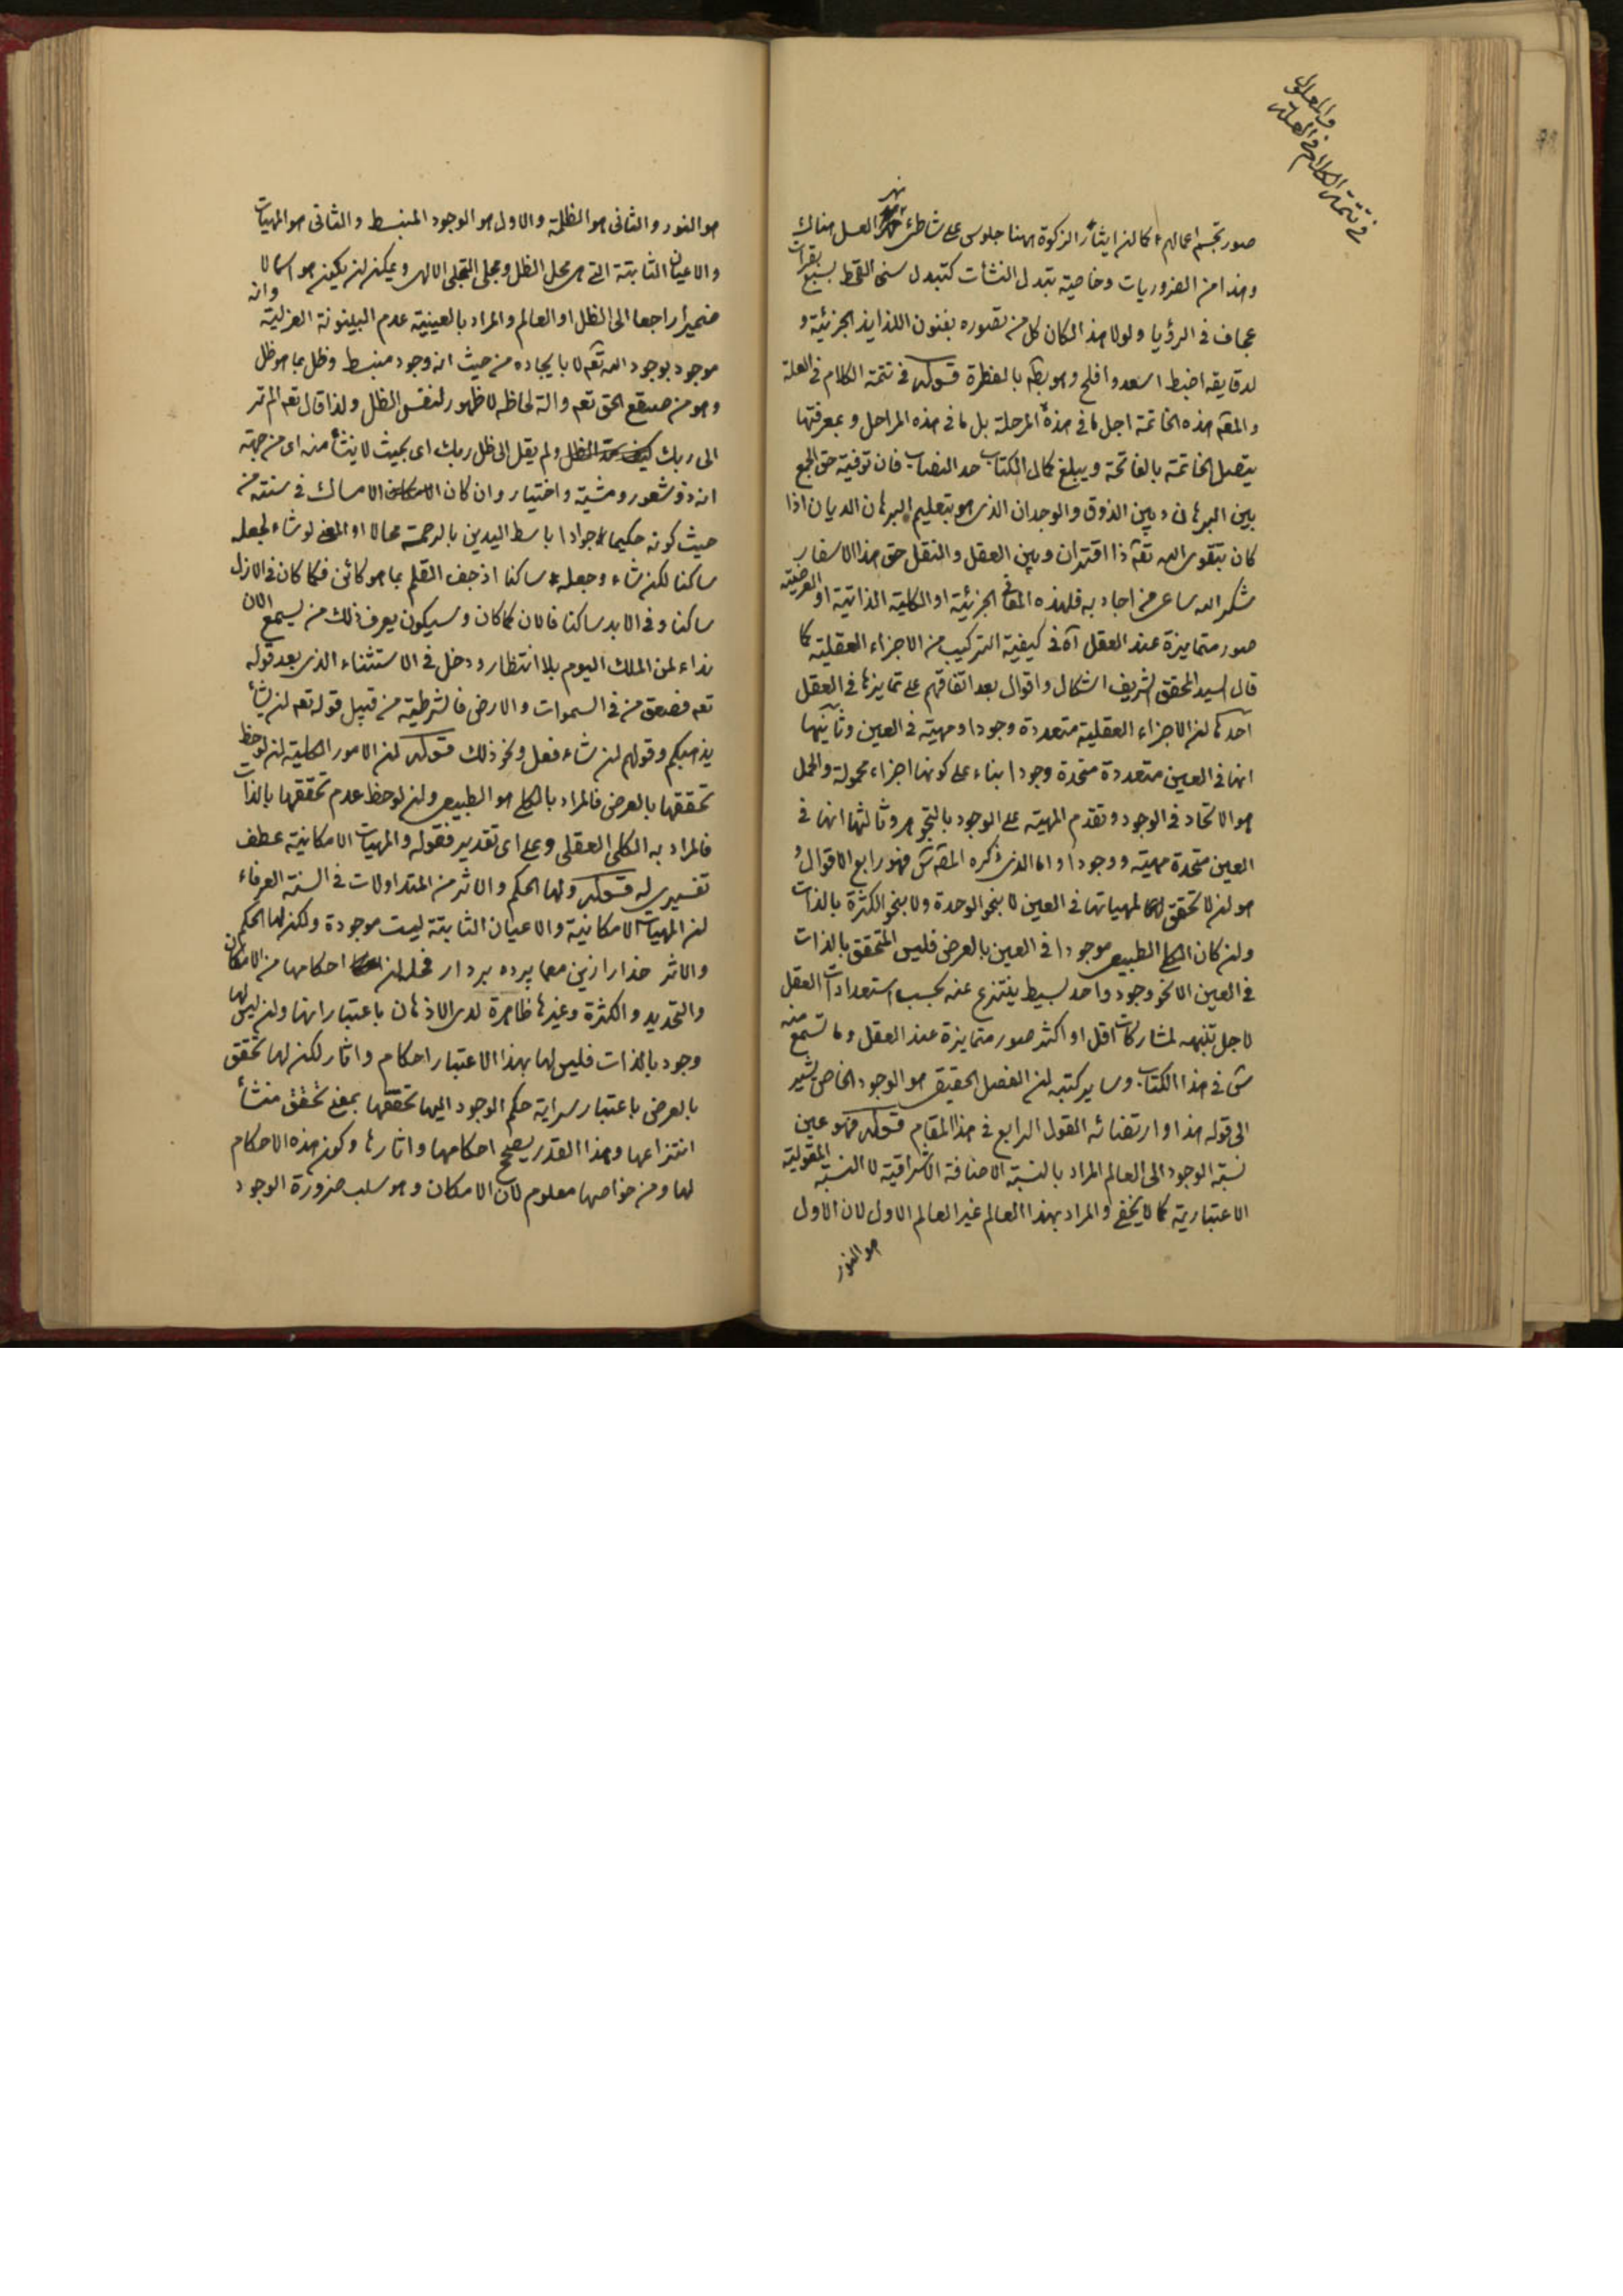 في تتمة الكلام في العلة
والمعلول
صور تجسم اعمالهم كما ان ايثار الزكوة ههنا جلوس على شاطئ نهر العسل هناك
وهذا من الضروريات وخاصية بتبدل النشأت كتبدل سنى القحط بسبع بقرات
عجاف في الرؤيا ولولا هذا لكان كل من تصوره بفنون اللذايذ الجزئية و
لدقايقه اضبط اسعد وافلح وهو بط بالفطرة قوله في تتمة الكلام في العلة
والمعة هذه الخاتمة اجل ما في هذه المرحلة بل ما في هذه المراحل و بمعرفتها
يتصل الخاتمة بالفاتحة ويبلغ كمال الكتاب حد النصاب فان توفية حق الجمع
بين البرهان وبين الذوق والوجدان الذى هو بتعليم البرهان الديان اذا
كان بتقوى الله تعه ذا اقتران وبين العقل والنقل حق هذا الاسفار
شكر الله ساعى من اجاد به فلهذه المعانى الجزئية او الكلية الذاتية او العرضية
صور متمايزة عند العقل آه في كيفية التركيب من الاجزاء العقلية كما
قال السيد المحقق الشريف اشكال واقوال بعد اتفاقهم على تمايزها في العقل
احدها ان الاجزاء العقلية متعددة وجودا ومهية في العين وثانيها
انها في العين متعددة متحدة وجودا بناء على كونها اجزاء محمولة والحمل
هو الاتحاد في الوجود وتقدم المهية على الوجود بالتجوهر وثالثها انها في
العين متحدة مهية ووجودا واما الذى ذكره المصه س فهو رابع الاقوال و
هو ان لا تحقق لمهياتها في العين لا بنحو الوحدة ولا بنحو الكثرة بالذات
وان كان الكلي الطبيعي موجودا في العين بالعرض فليس المتحقق بالذات
في العين الا نحو وجود واحد بسيط ينتزع عنه بحسب استعدادات العقل
لاجل تنبهه لمشاركات اقل او اكثر صور متمايزة عند العقل وما تسمع منه
س في هذا الكتاب وساير كتبه ان الفصل الحقيقي هو الوجود الخاص يشير
الى قوله هذا وارتضائه القول الرابع في هذا المقام قوله فهو عين
نسبة الوجود الى العالم المراد بالنسبة الاضافة الاشراقية لا النسبة المقولية
الاعتبارية كما لا يخفى والمراد بهذا العالم غير العالم الاول لان الاول
هو النور
هو النور والثانى هو الظلمة والاول هو الوجود المنبسط والثانى هو المهيات
والاعيان الثابتة التى هى محل الظل ومجلى التجلى الالهى ويمكن ان يكون هو اسما لا
ضميرا راجعا الى الظل او العالم والمراد بالعينية عدم البينونة العزلية وانه
موجود بوجود الله تعه لا بايجاده من حيث انه وجود منبسط وظل بما هو ظل
وهو من صقع الحق تعه والة لحاظه لا ظهور لنفس الظل ولذا قال تعه الم تر
الى ربك كيف مد الظل ولم يقل الى ظل ربك اى بحيث لا ينشأ منه اى من جهة
انه ذو شعور ومشية واختيار وان كان الامساك في سنته من
حيث كونه حكيما جوادا باسط اليدين بالرحمة محالا او المعنى لو شاء لجعله
ساكنا لكن شاء وجعله ساكنا اذ جف القلم بما هو كائن فكما كان في الازل
ساكنا وفي الابد ساكنا فالان كما كان وسيكون يعرف ذلك من يسمع الان
نداء لمن الملك اليوم بلا انتظار ودخل في الاستثناء الذى بعد قوله
تعه فصعق من في السموات والارض فالشرطية من قبيل قوله تعه ان يشأ
يذهبكم وقولهم ان شاء فعل ونحو ذلك قوله ان الامور الكلية ان لوحظ
تحققها بالعرض فالمراد بالكلى هو الطبيعى وان لوحظ عدم تحققها بالذات
فالمراد به الكلى العقلى وعلى اى تقدير فقوله والمهيات الامكانية عطف
تفسيرى له قوله ولها الحكم والاثر من المتداولات في السنة العرفاء
ان المهيات الامكانية والاعيان الثابتة ليست موجودة ولكن لها الحكم
والاثر خدا را زين معما پرده بردار فحله ان احكامها من الامكان
والتحديد والكثرة وغيرها ظاهرة لدى الاذهان باعتبار انها وان ليس لها
وجود بالذات فليس لها بهذا الاعتبار احكام واثار لكن لها تحقق
بالعرض باعتبار سراية حكم الوجود اليها تحققها بمعنى تحقق منشأ
انتزاعها وهذا القدر يصحح احكامها واثارها وكون هذه الاحكام
لها ومن خواصها معلوم لان الامكان وهو سلب ضرورة الوجود